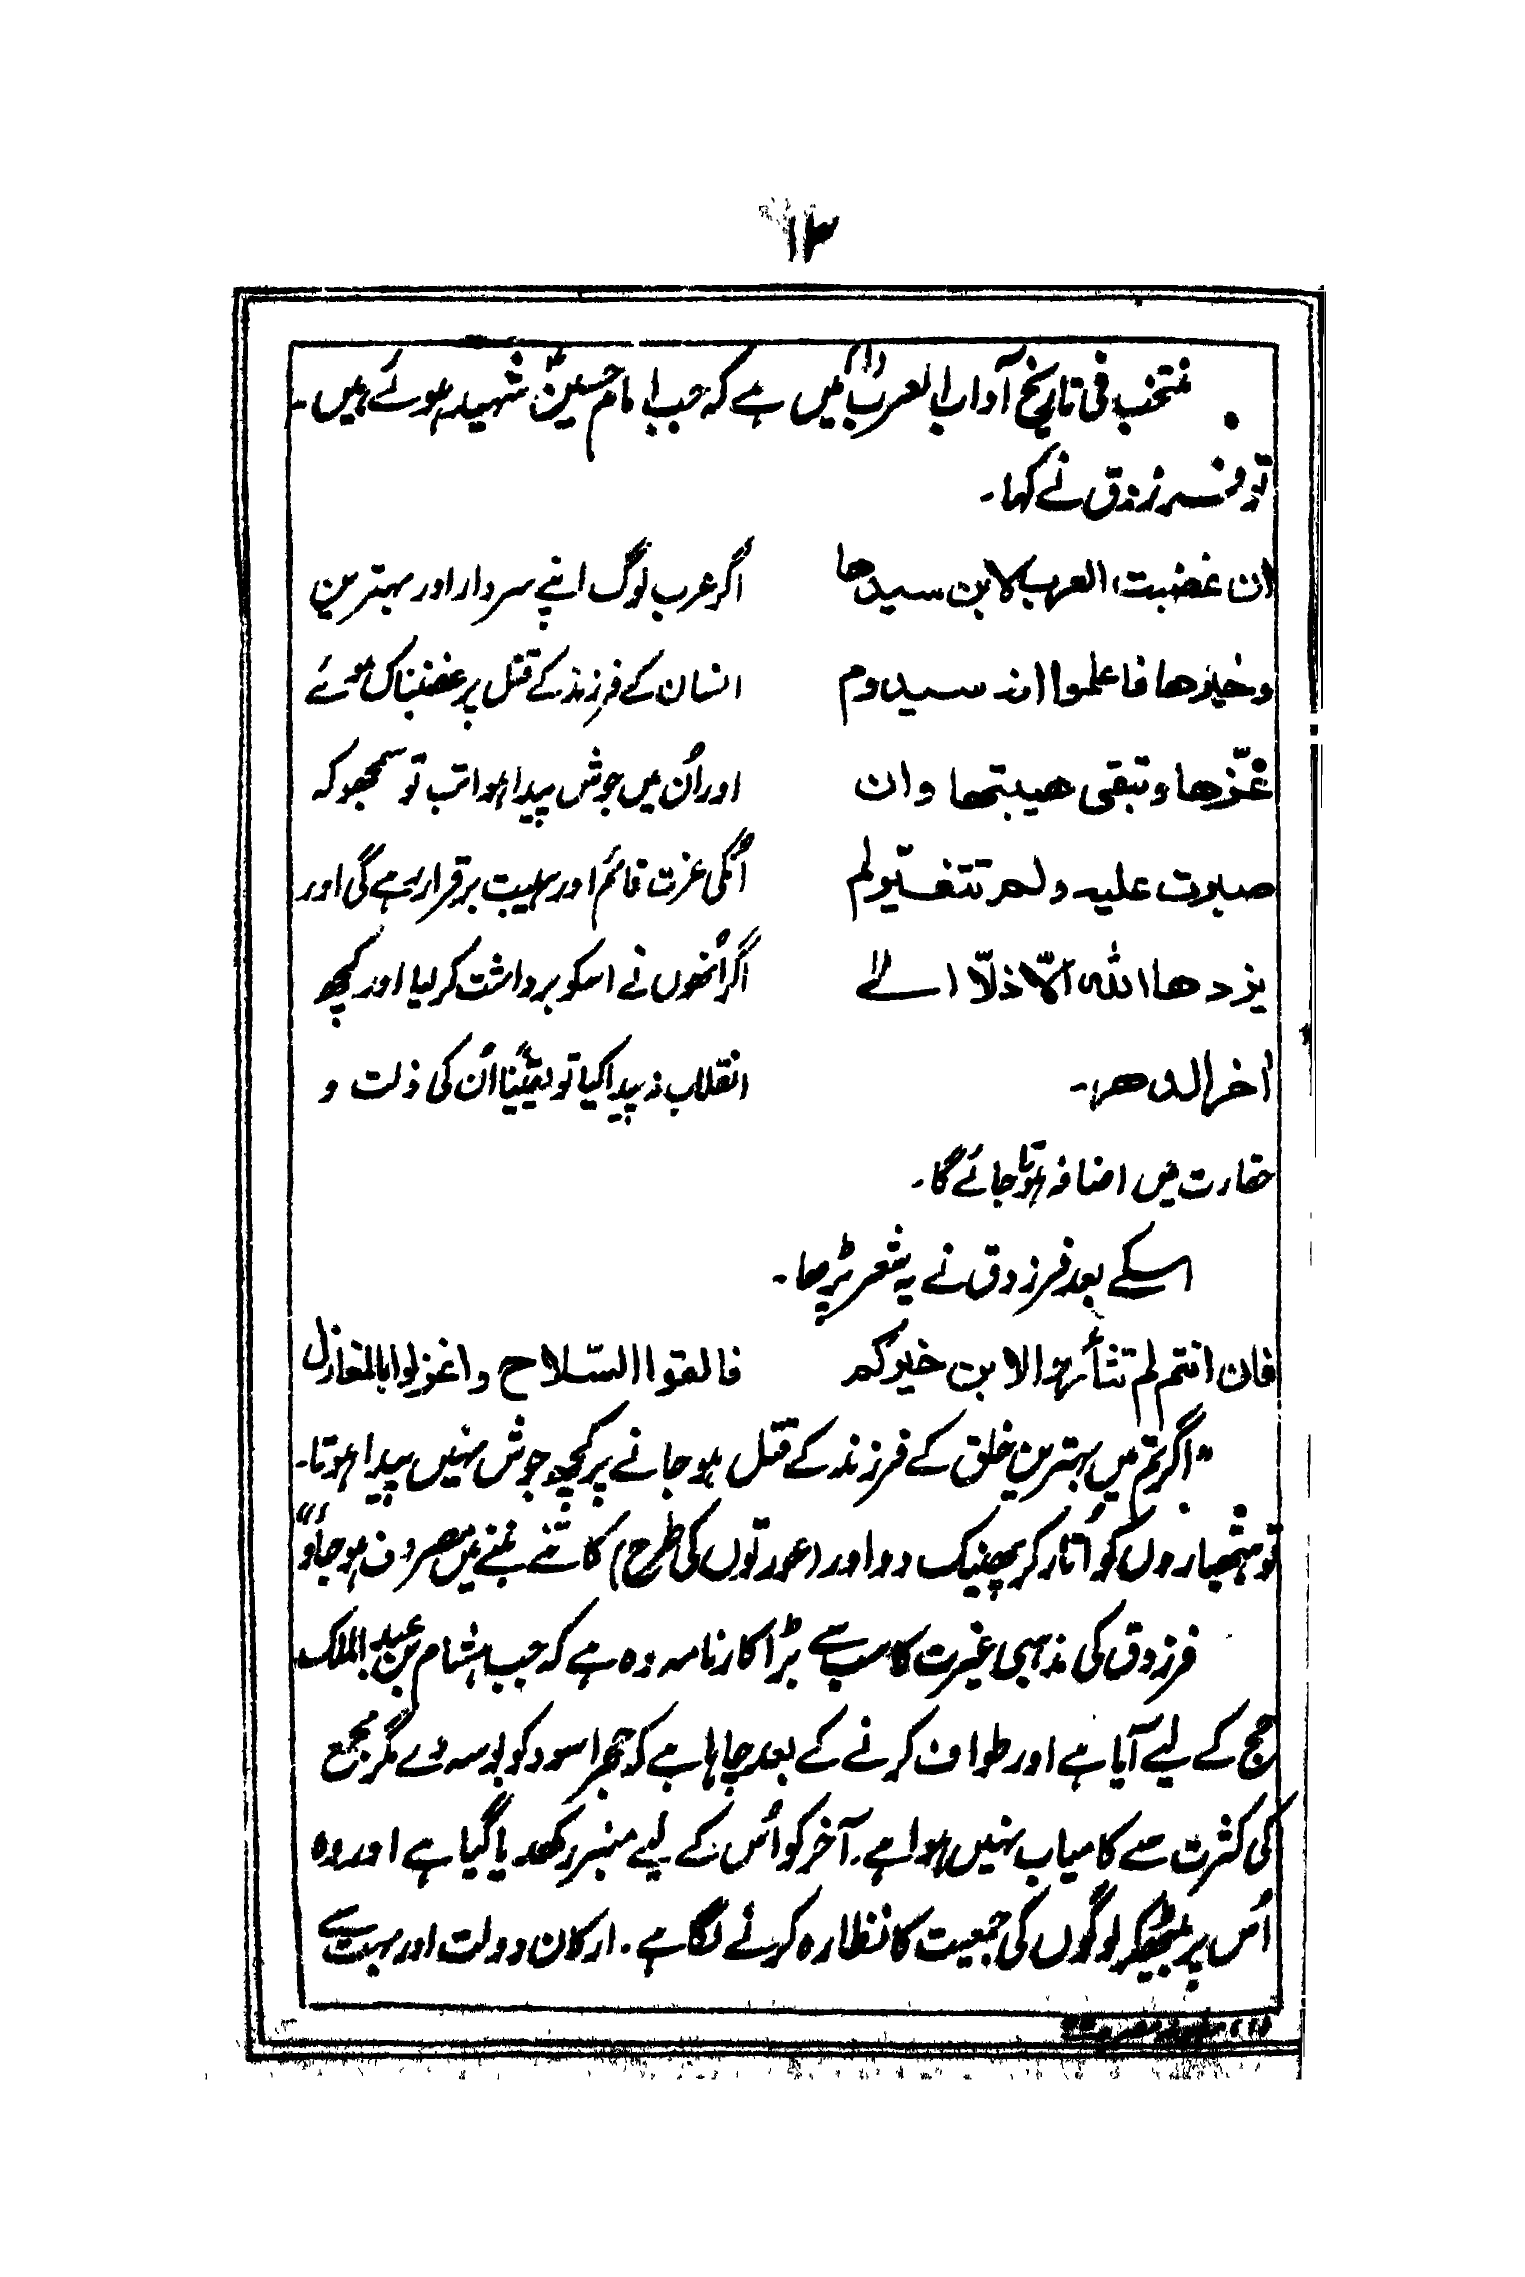 ۱۳
منتخب فی تاریخ آداب العرب(۱) میں ہے کہ جب امام حسینؑ شہید ہوئے ہیں۔
تو فرزدق نے کہا۔
ان غضبت العرب لابن سیدها اگر عرب لوگ اپنے سردار اور بہترین
وخیرها فاعلموا انه سیدوم انسان کے فرزند کے قتل پر غضبناک ہوئے
عزّها وتبقی هیبتها وان اور اُن میں جوش پیدا ہوا تب تو سمجھو کہ
صبرت علیه ولم تتغیّر لم اُنکی عزت قائم اور ہیبت برقرار رہے گی اور
یزدها الله الّا ذلّا الی اگر اُنھوں نے اسکو برداشت کرلیا اور کچھ
اٰخر الدهر۔ انقلاب نہ پیدا کیا تو یقیناً اُن کی ذلت و
حقارت میں اضافہ ہوتا جائے گا۔
اسکے بعد فرزدق نے یہ شعر پڑھا۔
فان انتم لم تثأروا لابن خیرکم فالقوا السّلاح واغزلوا بالمغازل
"اگر تم میں بہترین خلق کے فرزند کے قتل ہو جانے پر کچھ جوش نہیں پیدا ہوتا۔
تو ہتھیاروں کو اُتار کر پھینک دو اور (عورتوں کی طرح) کاتنے بننے میں مصروف ہو جاؤ"
فرزدق کی مذہبی غیرت کا سب سے بڑا کارنامہ وہ ہے کہ جب ہشام بن عبدالملک
حج کے لیے آیا ہے اور طواف کرنے کے بعد چاہا ہے کہ حجر اسود کو بوسہ دے مگر مجمع
کی کثرت سے کامیاب نہیں ہوا ہے۔ آخر کو اُس کے لیے منبر رکھدیا گیا ہے اور وہ
اُس پر بیٹھکر لوگوں کی جمعیت کا نظارہ کرنے لگا ہے۔ ارکان دولت اور بہت سے